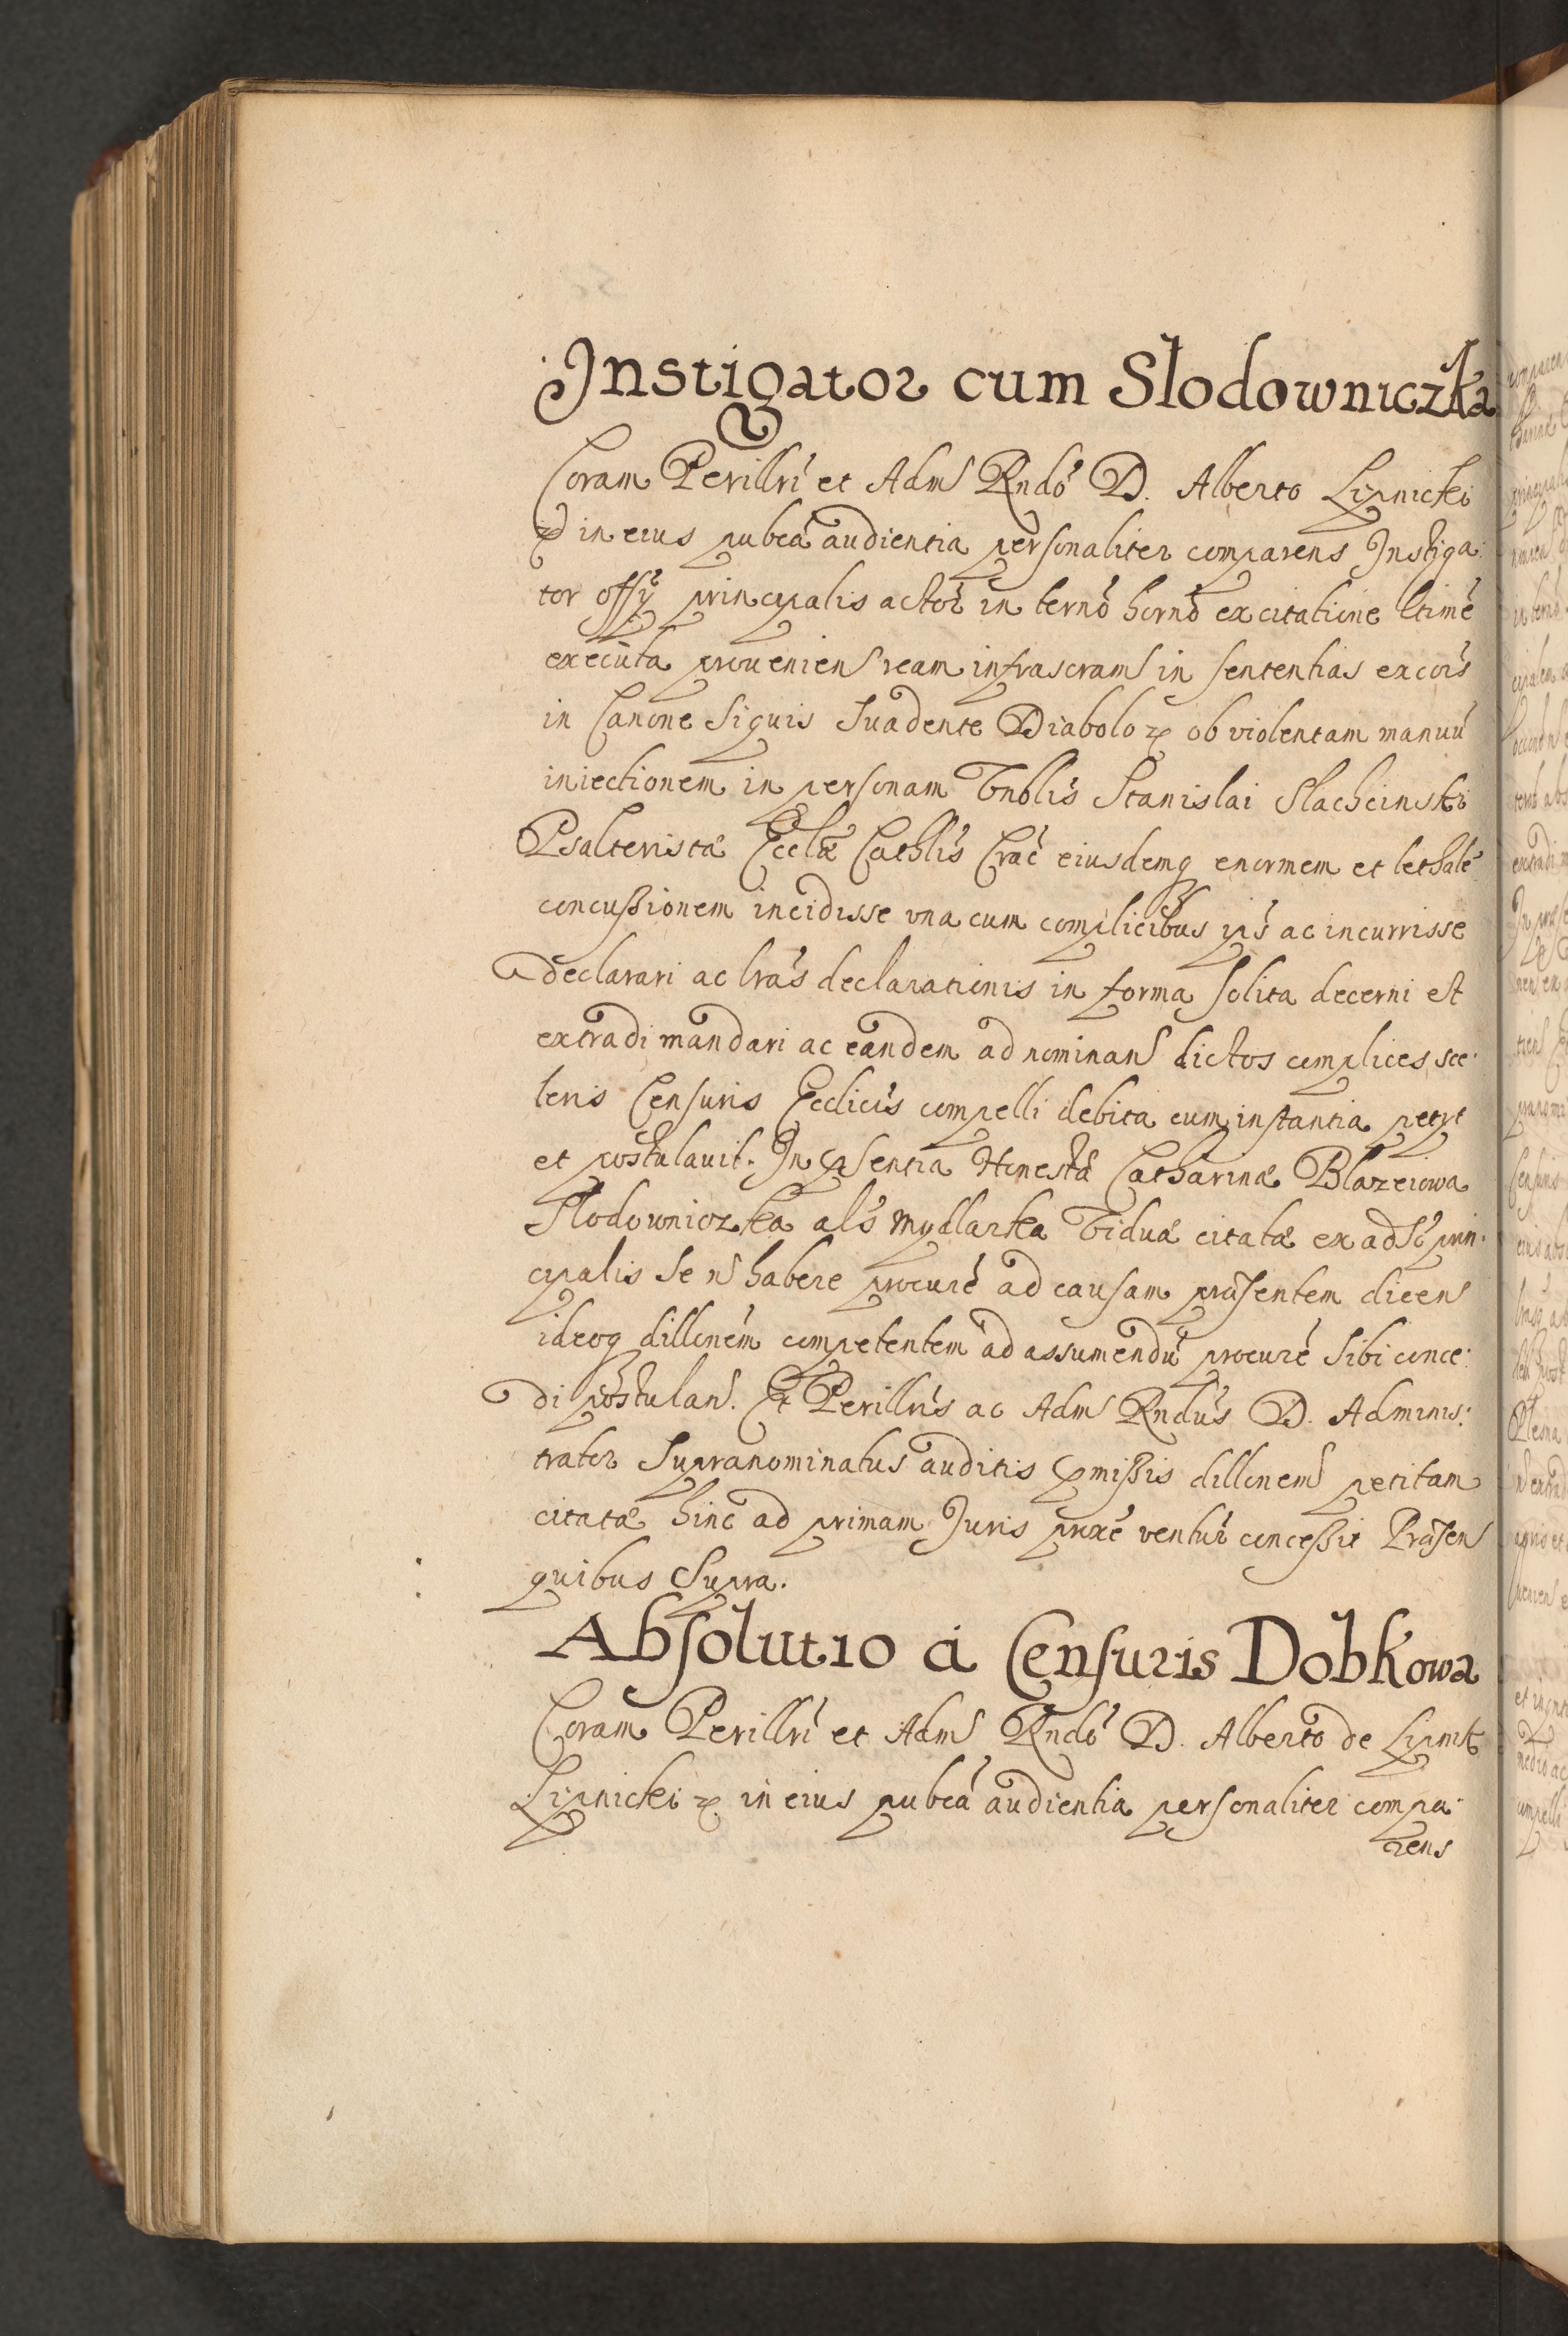 Instigator cum Słodowniczka
Coram Perillri et Adm Rndo D. Alberto Lipnicki
et in eius pubca audientia personaliter comparens Instiga:
tor offy principalis actor in termo horno ex citatione ltime
executa proueniens ream infrascram in sententias excois
in Canone Siquis Suadente Diabolo etc ob violentam manuu
iniectionem in personam Vnblis Stanislai Slachcinski
Psalteristæ Ecclæ Cathlis Crac eiusdemq enormem et lethale
concussionem incidisse vna cum complicibus ac incurrisse
declarari ac lras declarationis in forma solita decerni est
extradi mandari ac eandem ad nominan dictos complices sce:
leris Censuris Ecclicis compelli debita cum instantia petyt
et postulauit. In psentia Honestæ Catharinæ Błazeiowa
Słodowniczka als Mydlarka Viduæ citatæ ex adso prin:
cipalis Se n habere procure ad causam præsentem dicen
ideoq dillonem competentem ad assumendu procure Sibi conce:
di postulan. Et Perillris ac Adm Rndus D. Adminis:
trator Supranominatus auditis pmissis dillonem petitam
citatæ hinc ad primam Juris proxe ventur concessit Præsen
quibus Supra.
Absolutio à Censuris Dobkowa
Coram Perillri et Adm Rndo D. Alberto de Lipnik
Lipnicki etc in eius pubca audientia personaliter compa:
rens